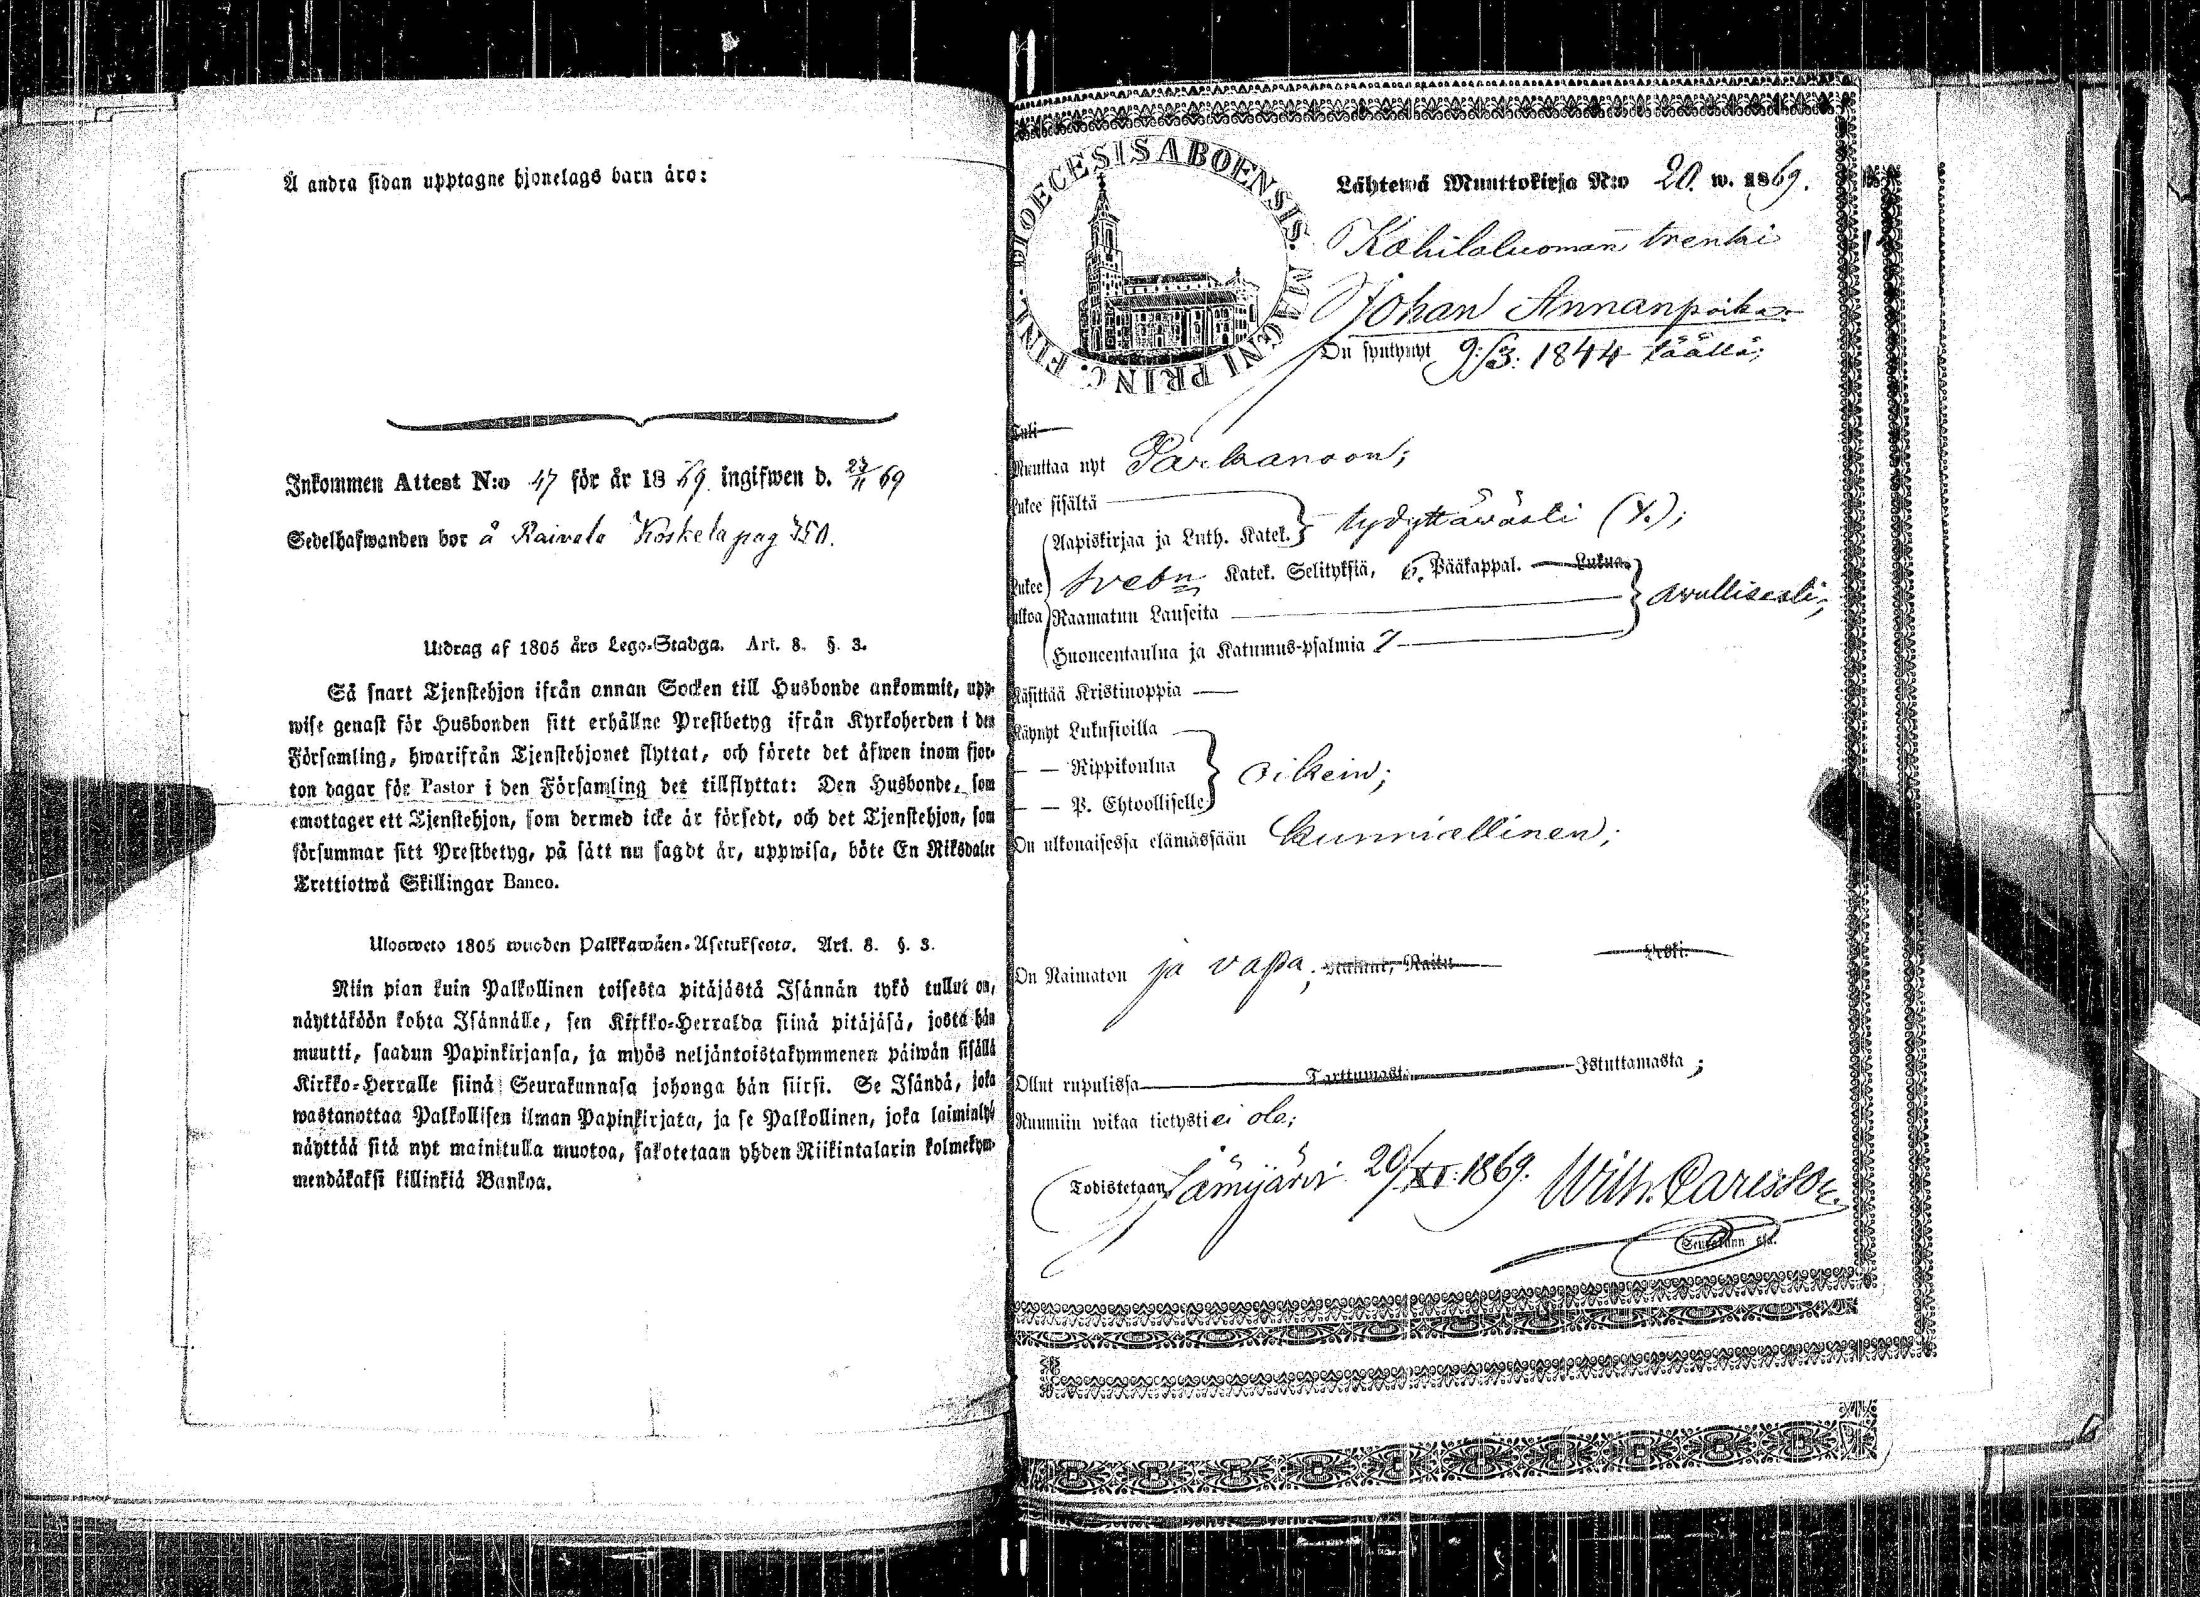 Å andra sidan upptagne hjonelags barn äro:
Inkommen Attest N:o 47 för år 1869. ingifwen d. 23/11 69
Sedelhafwanden bor å Raivala Koskela pag 350.
Utdrag af 1805 års Lego-Stadga. Art. 8. §. 3.
Så snart Tjenstehjon ifrån annan Socken till Husbonde ankommit, upp-
wise genast för Husbonden sitt erhållne Prestbetyg ifrån Kyrkoherden i den
Församling, hwarifrån Tjenstehjonet flyttat, och förete det äfwen inom fjor-
ton dagar för Pastor i den Församling det tillflyttat: Den Husbonde, som
emottager ett Tjenstehjon, som dermed icke är försedt, och det Tjenstehjon, som
försummar sitt Prestbetyg, på sätt nu sagdt är, uppwisa, böte En Riksdaler
Trettiotwå Skillingar Banco.
Ulosweto 1805 wuoden Palkkawäen-Asetuksesta. Art. 8. §. 3.
Niin pian kuin Palkollinen toisesta pitäjästä Isännän tykö tullut on,
näyttäköön kohta Isännälle, sen Kirkko-Herralda siinä pitäjäsä, josta hän
muutti, saadun Papinkirjansa, ja myös neljäntoistakymmenen päiwän sisällä
Kirkko-Herralle siinä Seurakunnasa johonga hän siirsi. Se Isändä, joka
wastanottaa Palkollisen ilman Papinkirjata, ja se Palkollinen, joka laiminlyö
näyttää sitä nyt mainitulla muotoa, sakotetaan yhden Riikintalarin kolmekym-
mendäkaksi killinkiä Bankoa.
DIOECESIS ABOENSIS. MAGNI PRINC. FINL.
Lähtewä Muuttokirja N:o 20. w. 1869.
Kahilaluoman trenki
Johan Annanpoika
On syntynyt 9/3. 1844 täällä;
Tuli
Muuttaa nyt Parkanoon;
Lukee sisältä
Aapiskirjaa ja Luth. Katek. tydyttäwästi (4.);
Lukee Sveb Katek. Selityksiä, 6. Pääkappal. Lukua
ulkoa Raamatun Lauseita awullisesti;
Huoneentaulua ja Katumus-psalmia 7
Käsittää Kristinoppia
Käynyt Lukusioilla
— — Rippikoulua oikein;
— — P. Ehtoolliselle
On ulkonaisessa elämässään kunniallinen;
On Naimaton ja vapa; Naitu Leski.
Ollut rupulissa Tarttumasta Istuttamasta;
Ruumiin wikaa tietysti ei ole;
Todistetaan Jämijärvi 20/XI. 1869. Wilh. Carlsson